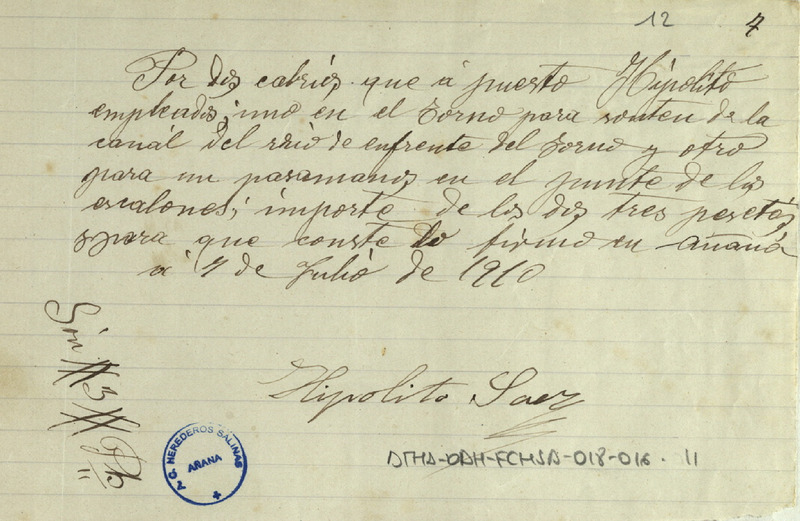 12 7
Por dos cabrios que á puesto Hipolito
empleados; uno en el Torno para sosten de la
canál del rrio de enfrente del Torno y otro
para un pasamanos en el punte de los
escalones; importe de los dos tres pesetas,
y para que conste lo firmo en Añaná
á 7 de Julio de 1910
Hipolito Saez
Son # 3 # Pts
A.G. HEREDEROS SALINAS
AÑANA
ATHA-DAH-FCHSA-018-016. 11